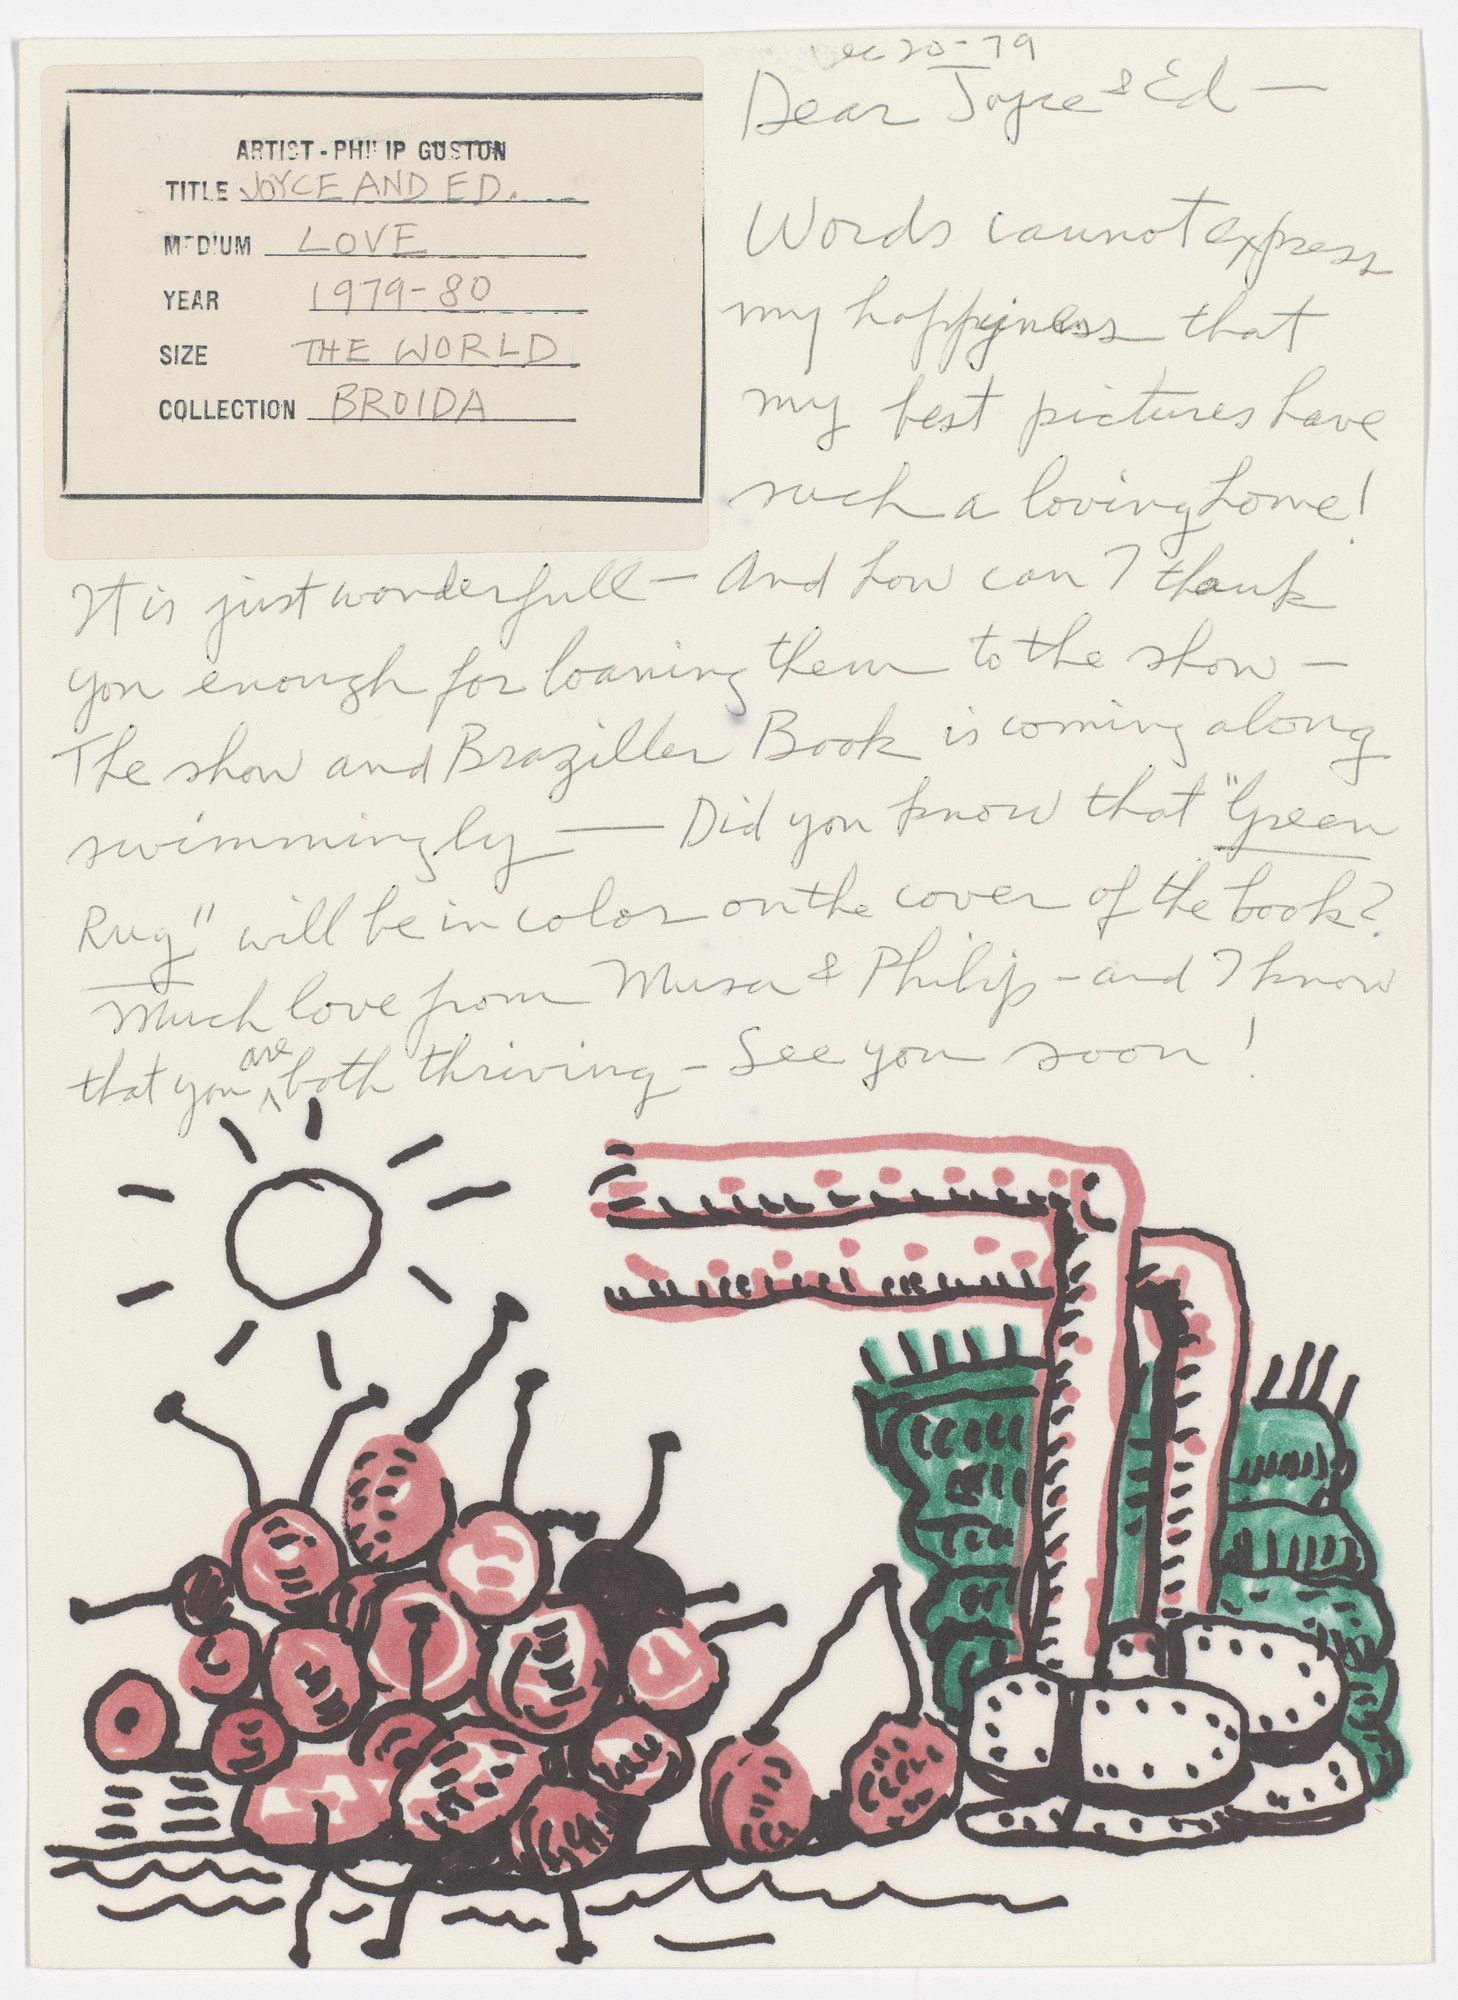 Dec 20-79
ARTIST - PHILIP GUSTON
TITLE JOYCE AND ED.
MEDIUM LOVE
YEAR 1979-80
SIZE THE WORLD
COLLECTION BROIDA
Dear Joyce & Ed —
Words cannot express
my happiness that
my best pictures have
such a loving home!
It is just wonderfull — And how can I thank
you enough for loaning them to the show —
The show and Braziller Book is coming along
swimmingly — Did you know that "Green
Rug" will be in color on the cover of the book?
Much love from Musa & Philip - and I know
that you are both thriving - See you soon!